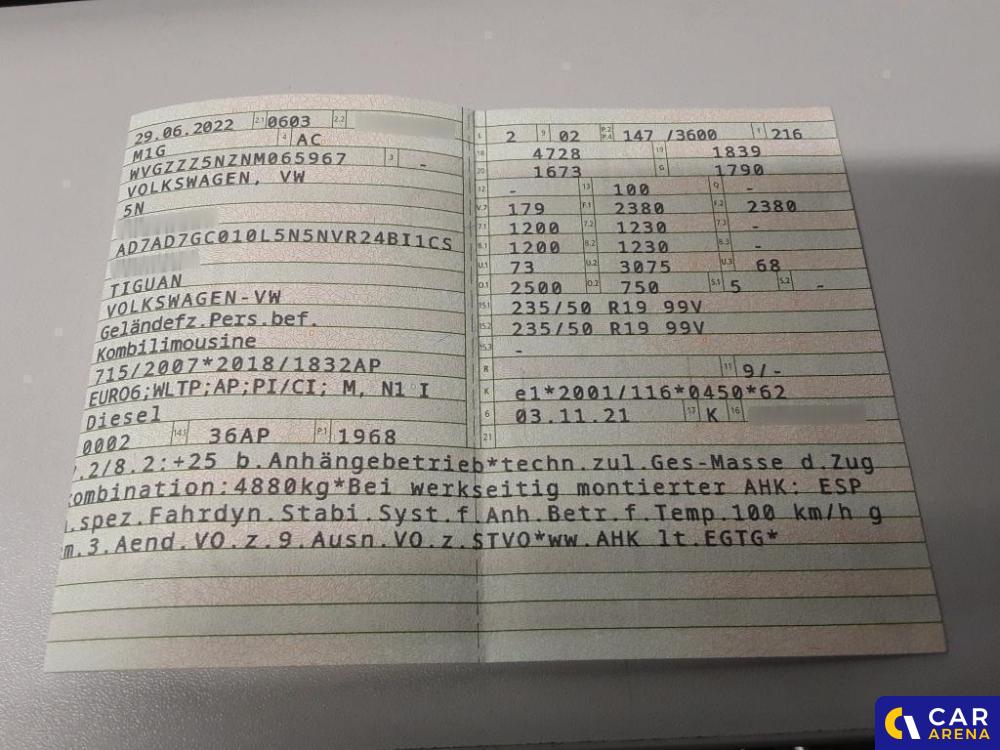 29.06.2022 2.1 0603 2.2
M1G 4 AC
WVGZZZ5NZNM065967 3 -
VOLKSWAGEN, VW
5N
AD7AD7GC010L5N5NVR24BI1CS
TIGUAN
VOLKSWAGEN-VW
Geländefz.Pers.bef.
Kombilimousine
715/2007*2018/1832AP
EURO6;WLTP;AP;PI/CI; M, N1 I
Diesel
0002 14.1 36AP P.1 1968
L 2 9 02 P.2 P.4 147 /3600 T 216
18 4728 19 1839
20 1673 G 1790
12 - 13 100 Q -
V.7 179 F.1 2380 F.2 2380
7.1 1200 7.2 1230 7.3 -
8.1 1200 8.2 1230 8.3 -
U.1 73 U.2 3075 U.3 68
O.1 2500 O.2 750 S.1 5 S.2 -
15.1 235/50 R19 99V
15.2 235/50 R19 99V
15.3 -
R 11 9/-
K e1*2001/116*0450*62
6 03.11.21 17 K 16
21
.2/8.2:+25 b.Anhängebetrieb*techn.zul.Ges-Masse d.Zug
ombination:4880kg*Bei werkseitig montierter AHK: ESP
.spez.Fahrdyn.Stabi.Syst.f.Anh.Betr.f.Temp.100 km/h g
m.3.Aend.VO.z.9.Ausn.VO.z.STVO*ww.AHK lt.EGTG*
CAR
ARENA